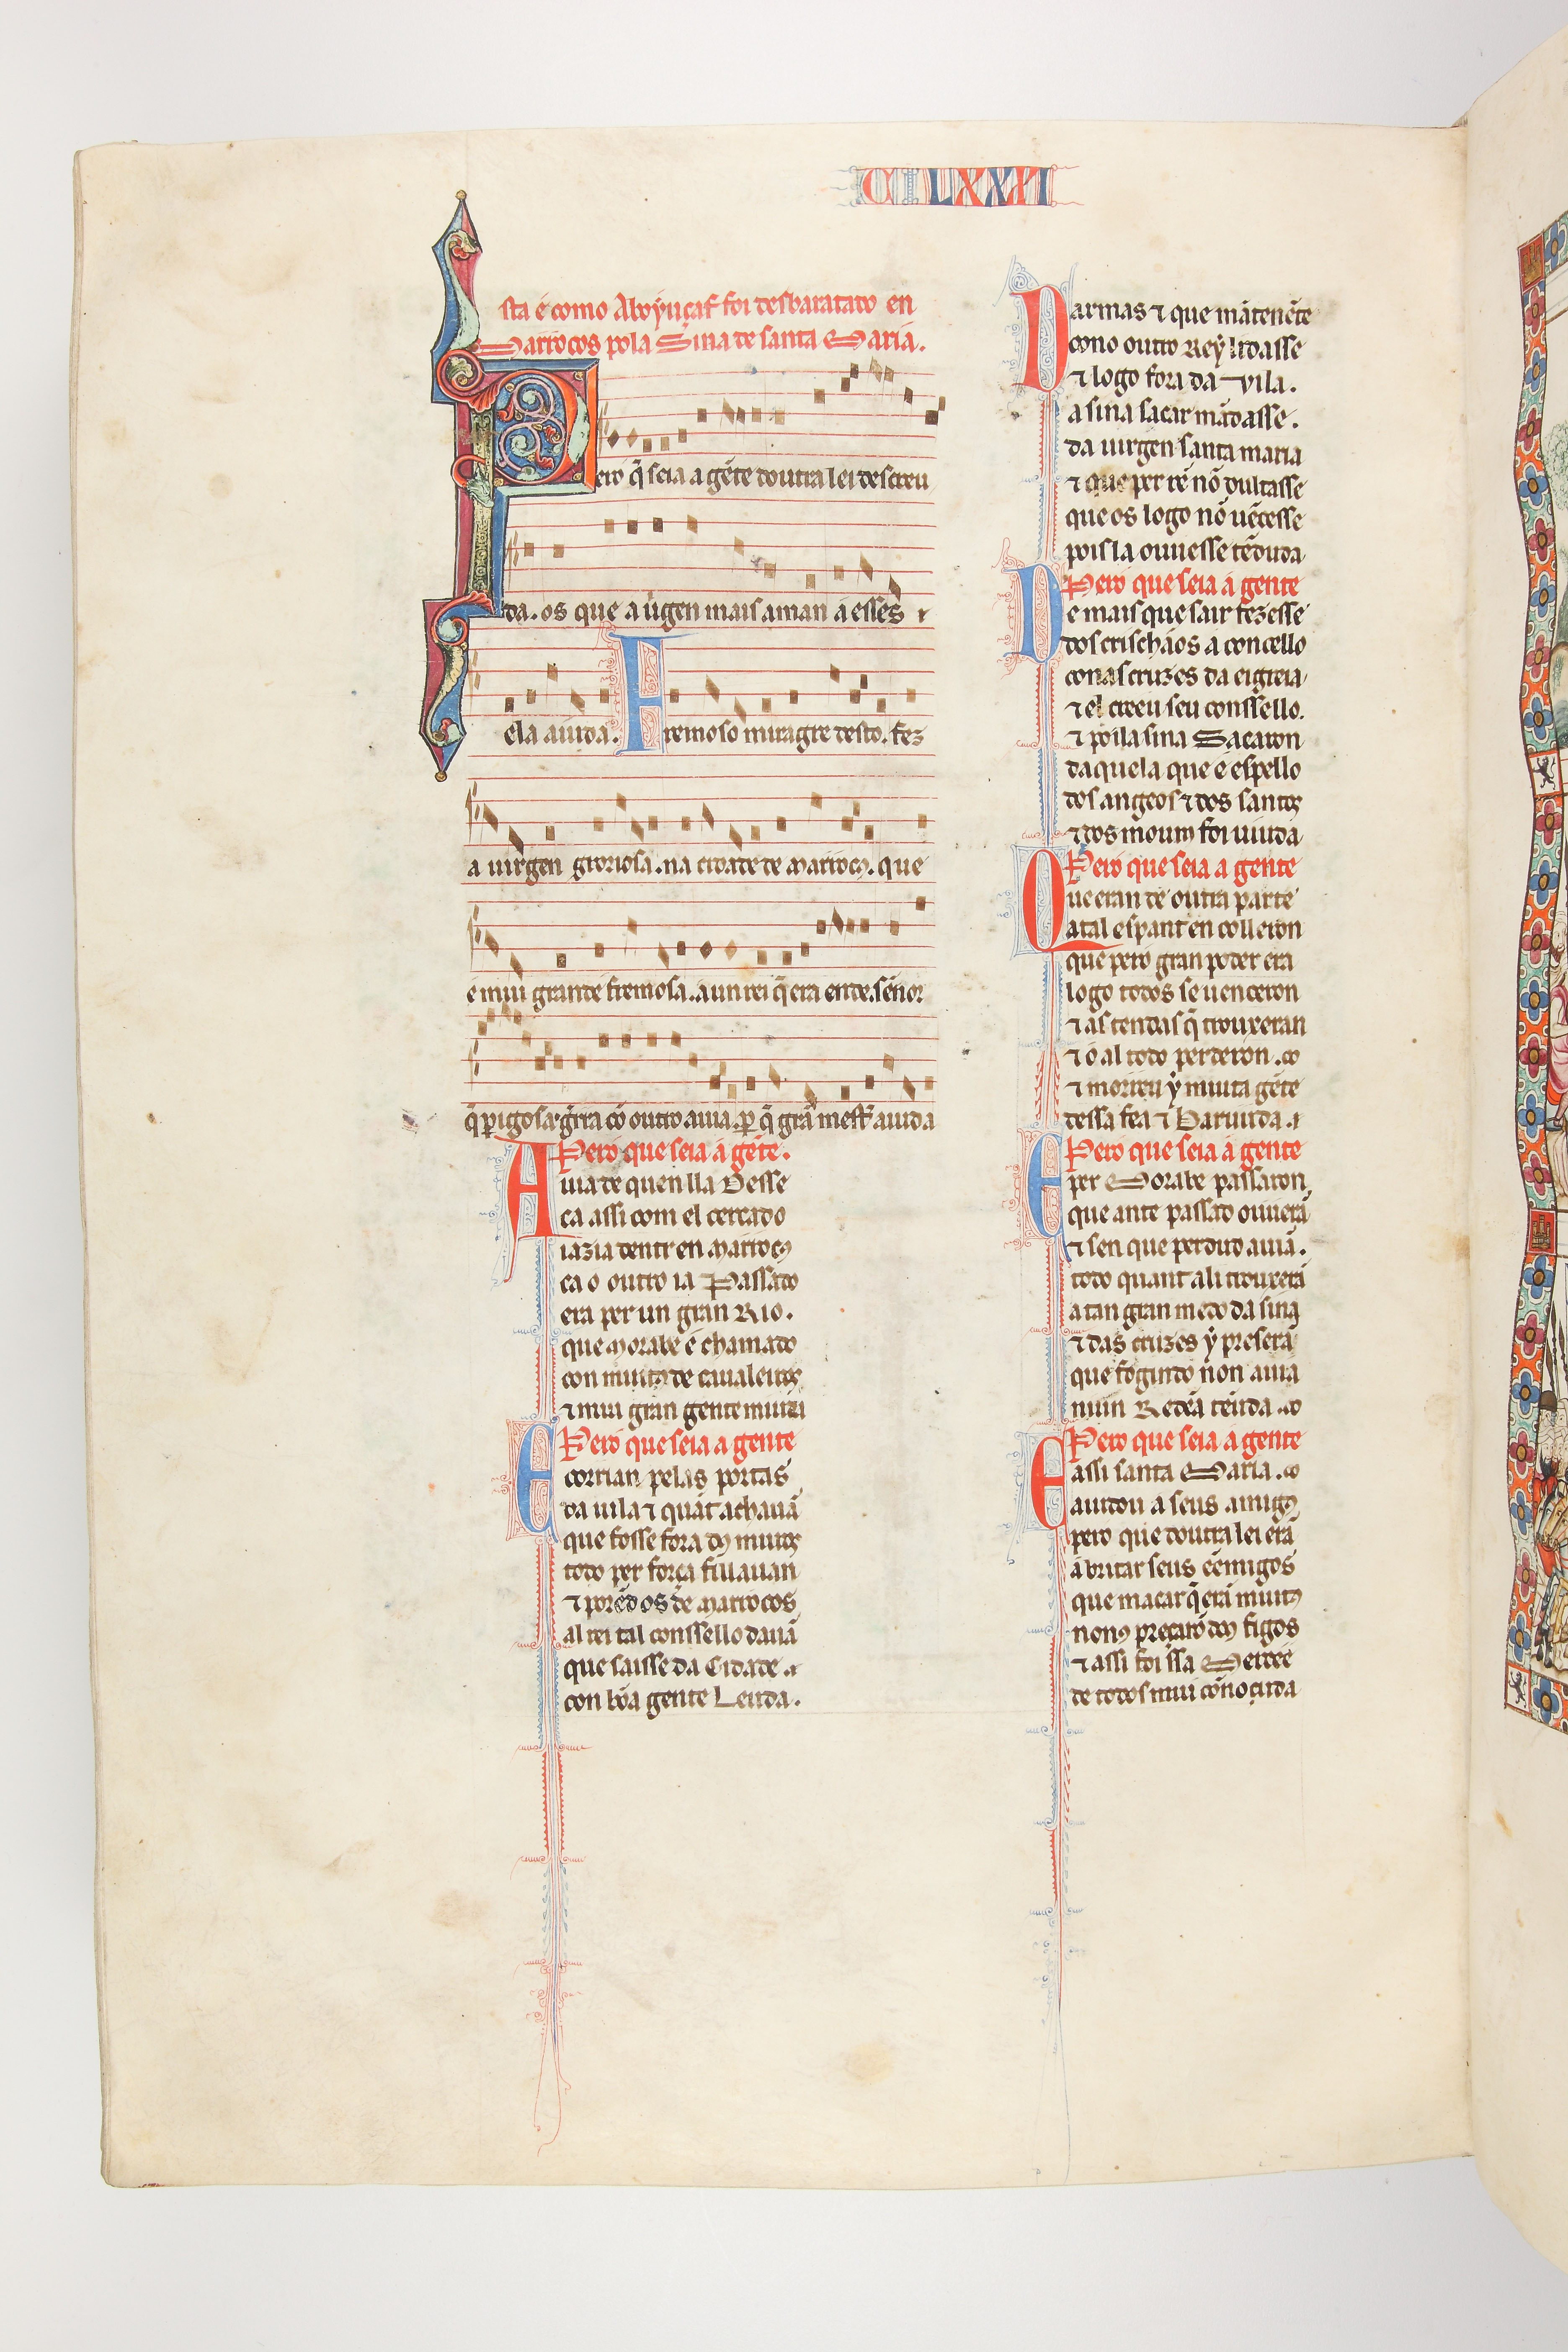 CLXXXI
sta é como Aboyuçaf foi desbaratado en
Marrocos pola Sina de santa Maria.
Pero q̃ seia a gẽte doutra lei descreu
da. os que a uirgen mais aman a esses
ela aiuda. Fremoso miragre desto. fez
a uirgen groriosa. na cidade de Marrocos. que
e mui grande fremosa. a un rei q̃ era ende. sẽnor
q̃ perigosa. gerra cõ outro auia. per q̃ grã mest̃ aiuda
Pero que seia a gẽte.
Auia de quen lla Desse
ca assi com el cercado
iazia dentr en Marrocos
ca o outro ia Passado
era per un gran Rio.
que Morabe é chamado
con muitos de caualeiros
⁊ mui gran gente miuda
Pero que seia a gente
E corrian pelas portas
da uila ⁊ quãt achauã
que fosse fora dos muros
todo per força fillauan
⁊ porẽd os de Marrocos
al rei tal conssello dauã
que saisse da Cidade
con bõa gente Leuda.
Darmas ⁊ que mãtenẽte
cono outro Rey lidasse
⁊ logo fora da Vila.
a sina sacar mãdasse.
da uirgen santa maria
⁊ que per rẽ nõ dultasse
que os logo nõ uẽcesse
pois la ouuesse tẽduda
Pero que seia a gente
De mais que sair fezesse
dos crischãos a concello
conas cruzes da eigreia
⁊ el creeu seu conssello.
⁊ poila sina Sacaron
daquela que e espello
dos angeos ⁊ dos santos
⁊ dos mouros foi uiuda
Pero que seia a gente
Que eran de outra parte
atal espant en colleron
que pero gran poder era
logo todos se uenceron
⁊ as tendas q̃ trouxeran
⁊ o al todo perderon
⁊ morreu y muita gẽte
dessa fea ⁊ Baruuda
Pero que seia a gente
E per Morabe passaron
que ante passad ouuerã
⁊ sen que perdud auiã.
todo quant ali trouxerã
atan gran medo da sina
⁊ das cruzes y preserã
que fogindo non auia
niun Redẽa tẽuda
Pero que seia a gente
E assi santa Maria
aiudou a seus amigos
pero que doutra lei erã
a britar seus eẽmigos
que macar q̃ erã muitos
nonos preçarõ dous figos
⁊ assi foi ssa Mercee
de todos mui cõnoçuda